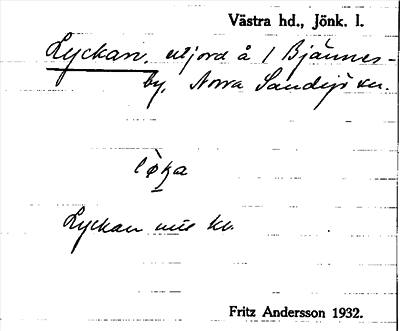 Västra hd., Jönk. l.
Lyckan, utjord å 1 Bjännes-
by, Norra Sandsjö sn.
Lyckan
Fritz Andersson 1932.